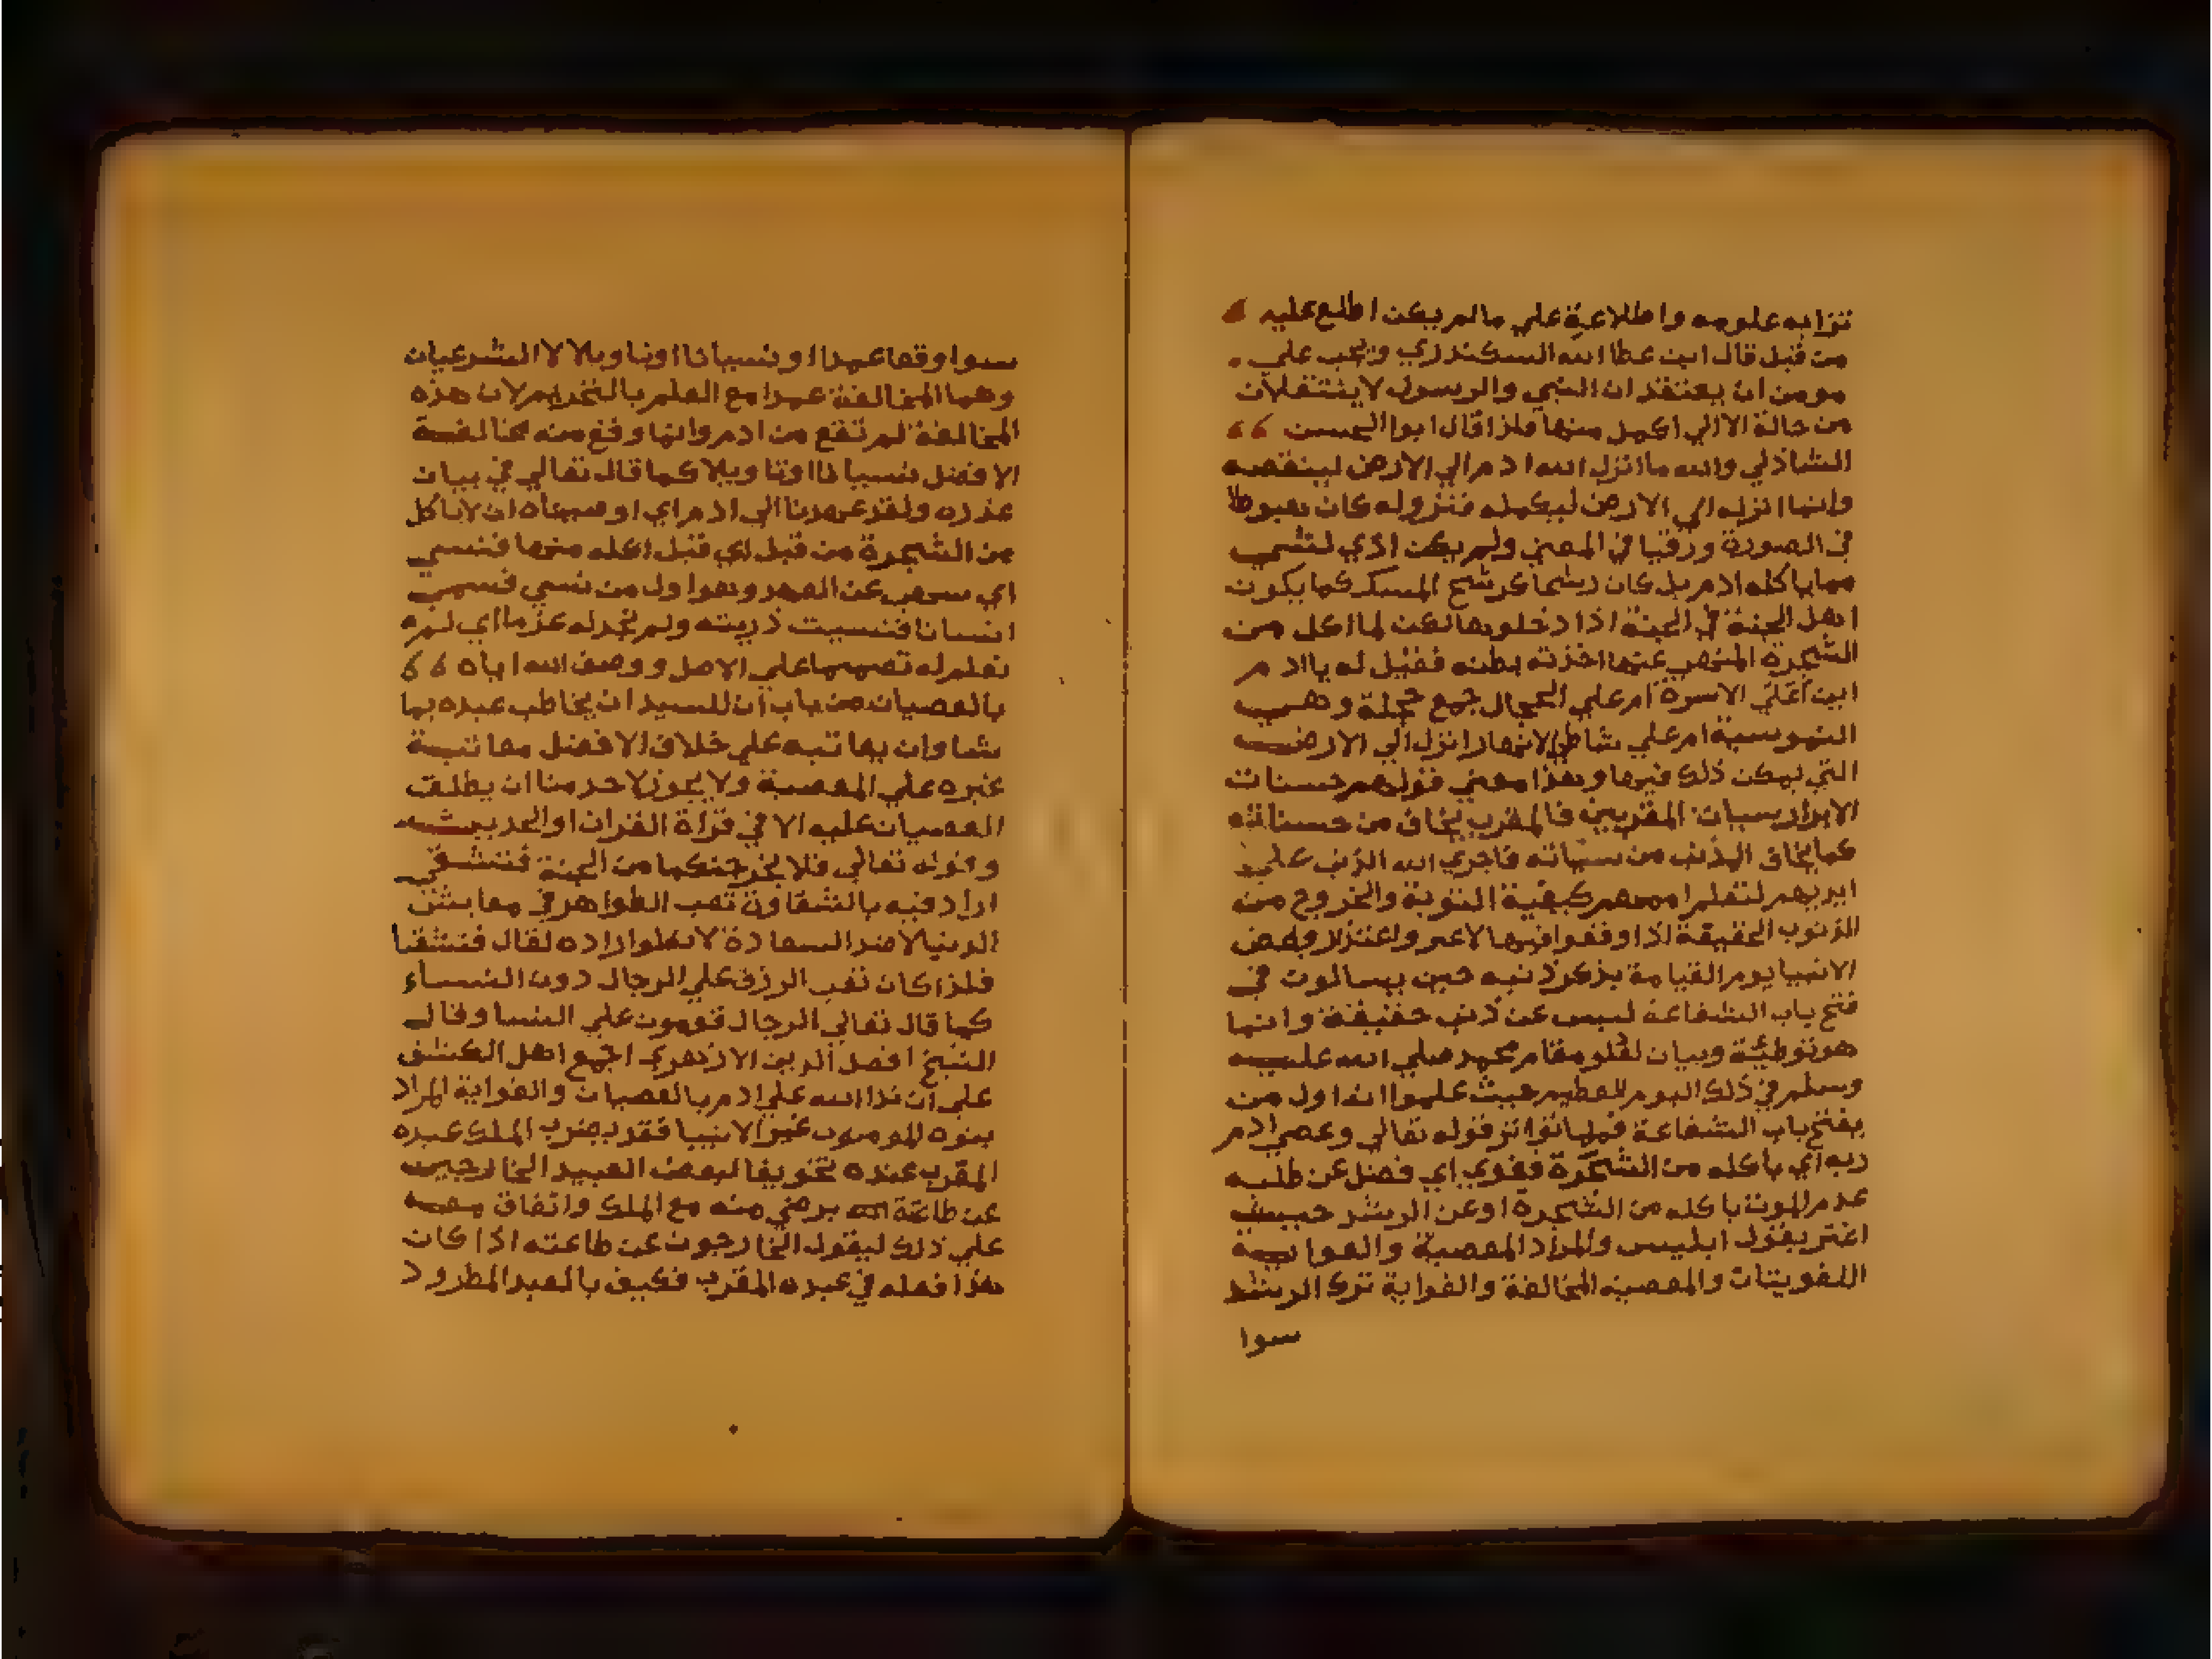 تزايد علومه واطلاعه علي ما لم يكن اطلع عليه
من قبل قال ابن عطا الله السكندري ويجب علي
مومن ان يعتقد ان النبي والرسول لا ينتقلان
من حالة الا الي اكمل منها ولذا قال ابوا الحسن
الشاذلي والله ما انزل الله ادم الي الارض لينقصه
وانما انزله الي الارض ليكمله فنزوله كان هبوطا
في الصورة ورقيا في المعني ولم يكن اذي لشي
مما ياكله ادم بل كان رشحا كرشح المسك كما يكون
اهل الجنة في الجنة اذا دخلوها لكن لما اكل من
الشجرة المنهي عنها اخذته بطنه فقيل له يا ادم
اين اعلي الاسرة ام علي الحجال جمع حجلة وهي
ام علي شاطي الانهار انزل الي الارض
التي يمكن ذلك فيها وهذا معني قولهم حسنات
الابرار سيات المقربين فالمقرب يخاف من حسناته
كما يخاف المذنب من سياته فاجري الله الذنب علي
ايديهم لتعلم اممهم كيفية التوبة والخروج من
الذنوب الحقيقة اذا وقفوا فيها لا غير واعتذار بعض
الانبيا يوم القيامة بذكر ذنبه حين يسالوت في
فتح باب الشفاعة ليس عن ذنب حقيقة وانما
هو توطئة وبيان لعلو مقام محمد صلي الله عليه
وسلم في ذلك اليوم العظيم حيث علموا انه اول من
يفتح باب الشفاعة قوله تعالي وعصي ادم
ربه اي باكله من الشجرة فغوي اي فضل عن طلبه
عدم الموت باكله من الشجرة او عن الرشد حيث
اغتر بقول ابليس والمراد المعصية والغواية
اللغويتان والمعصية المخالفة والغواية ترك الرشد
سوا
سوا وقعا عمدا او نسيانا او تاويلا لا الشرعيان
وهما المخالفة عمدا مع العلم بالتحريم لان هذه
المخالفة لم تقع من ادم وانما وقع منه مخالفة
الافضل نسيانا او تاويلا كما قال تعالي في بيان
عذره ولقد عهدنا الي ادم اي اوصيناه ان لا ياكل
من الشجرة من قبل اي قبل اكله منها فنسي
اي سهي عن العهد وهو اول من نسي فسمي
انسانا فنسيت ذريته ولم نجد له عزما اي لم
نعلم له تصميما علي الاصل ووصف الله اياه
بالعصيان من باب ان للسيد ان يخاطب عبده بما
شا وان يعاتبه علي خلاف الافضل معاتبة
غيره علي المعصية ولا يجوز لاحد منا ان يطلق
العصيان عليه الا في قراة القران او الحديث
وقوله تعالي فلا يخرجنكما من الجنة فتشقي
اراد فيه بالشقاوة تعب الظواهر في معايش
الدنيا لا ضد السعادة لانه لو اراده لقال فتشقيا
فلذا كان تعب الرزق علي الرجال دون النساء
كما قال تعالي الرجال قومون علي النسا وقال
الشيخ افضل الدين الازهري اجمع اهل الكشف
علي ان ندا الله علي ادم بالعصيان والغواية المراد
بنوه المومنون غير الانبيا فقد يضرب الملك عبده
المقرب عنده تخويفا لبعض العبيد الخارجين
عن طاعته برضي منه مع الملك واتفاق معه
علي ذلك ليقول الخارجون عن طاعته اذا كان
هذا فعله في عبده المقرب فكيف بالعبد المطرود